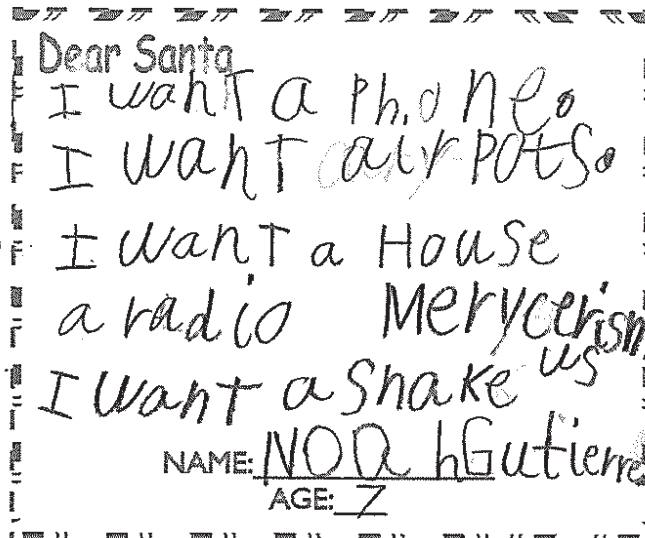 Dear Santa
I want a Phone.
I want airpots.
I want a House
a radio Merycerishm
us
I want a Snake
NAME: NOah Gutierre
AGE: 7